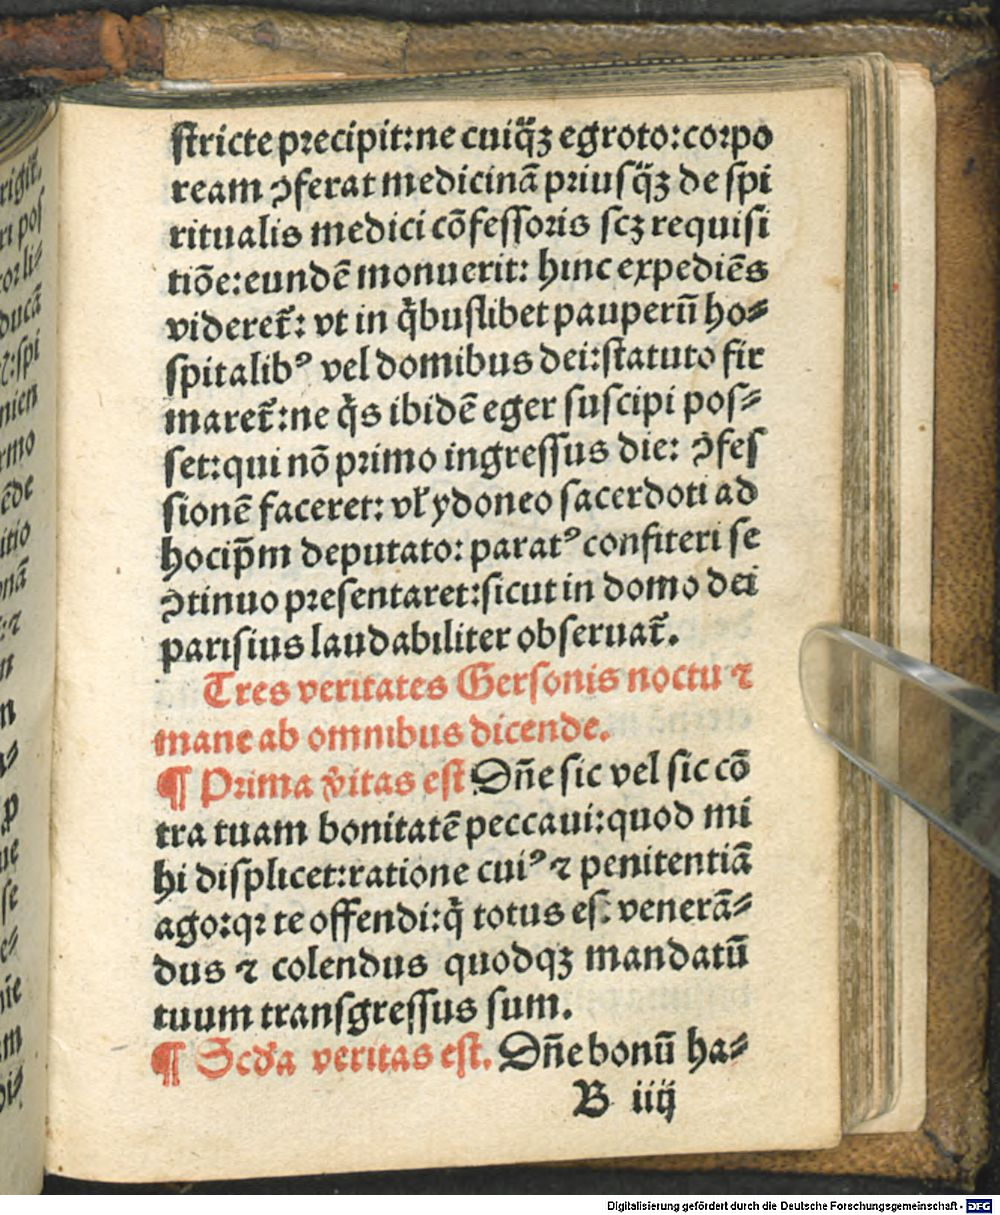 ſtricte precipit: ne cuiꝙ̈ꝫ egroto: corpo
ream ꝯferat medicinā priuſꝙ̈ꝫ de ſpi
ritualis medici cōfeſſoris ſcꝫ requiſi
tiōe: eundē monuerit: hinc expediēs
videret᷑: vt in q̇̄buſlibet pauperū ho⸗
ſpitalibꝰ vel domibus dei: ſtatuto fir
maret᷑: ne q̇s ibidē eger ſuſcipi poſ⸗
ſet: qui nō primo ingreſſus die: ꝯfeſ
ſionē faceret: vl̛ ydoneo ſacerdoti ad
hocip̄m deputato: paratꝰ confiteri ſe
ꝯtinuo preſentaret: ſicut in domo dei
pariſius laudabiliter obſeruat᷑.
Tres veritates Gerſonis noctu ⁊
mane ab omnibus dicende.
¶ Prima v̓itas eſt Dn̄e ſic vel ſic cō
tra tuam bonitatē peccaui: quod mi
hi diſplicet: ratione cuiꝰ ⁊ penitentiā
ago: qꝛ te offendi: q̇ totus es: venerā⸗
dus ⁊ colendus quodqꝫ mandatū
tuum tranſgreſſus ſum.
¶ Scd̓a veritas eſt. Dn̄e bonū ha⸗
B iiij
rigit᷑,
ri poſ
cor li⸗
ducā
ꝛ: ſpi
nien
rmo
ēde
itio
onā
: ⁊
ſe
am
Digitalisierung gefördert durch die Deutsche Forschungsgemeinschaft - DFG